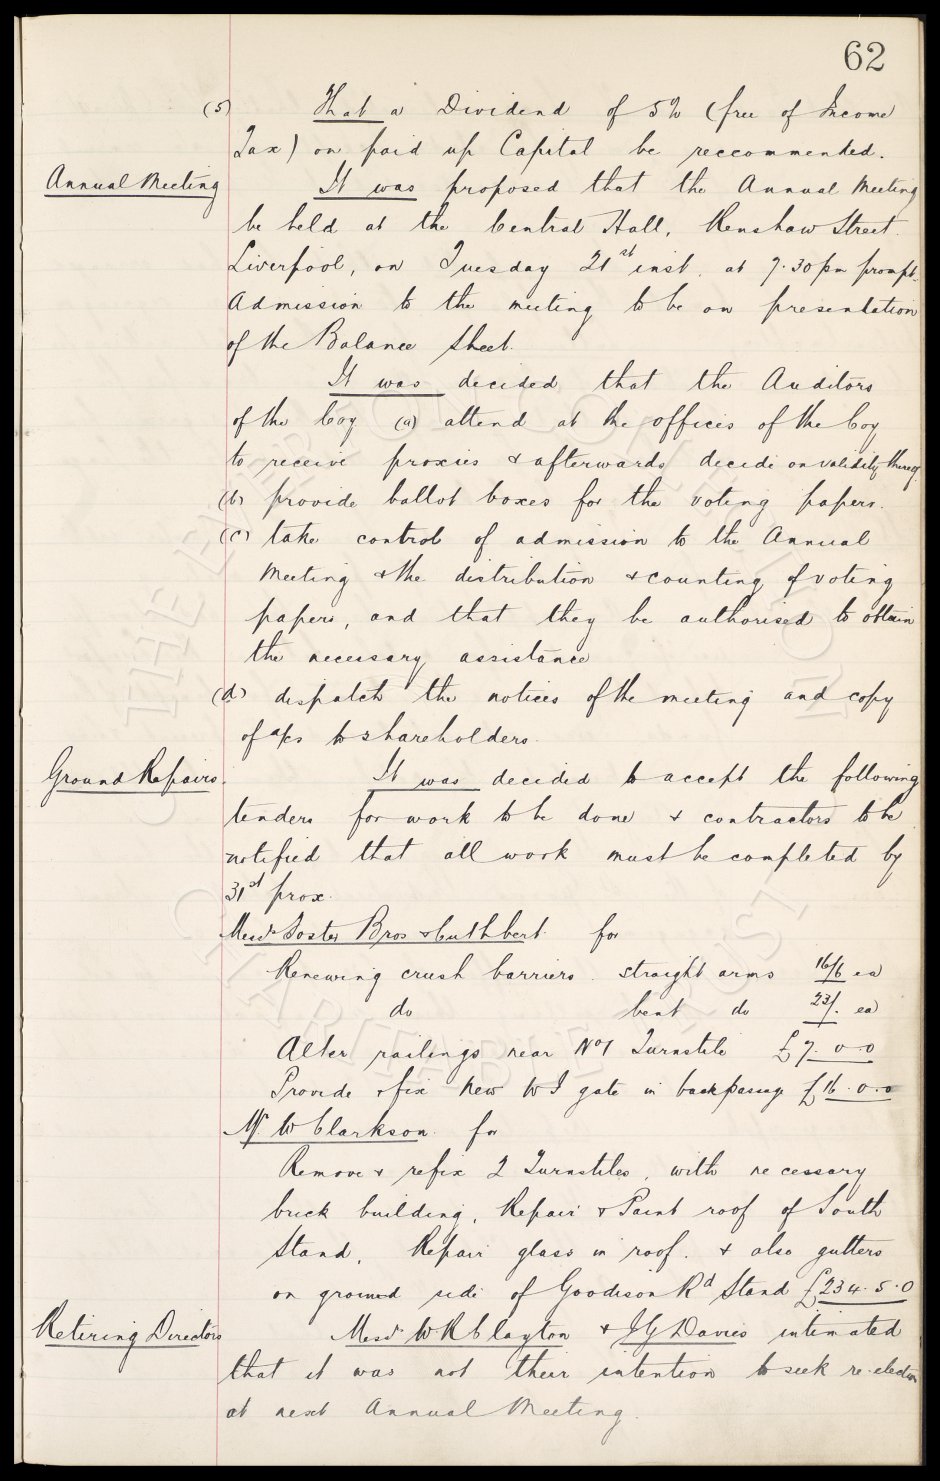 62
(5) That a Dividend of 5% (free of Income
Tax) on paid up Capital be reccommended.
Annual Meeting It was proposed that the Annual Meeting
be held at the Central Hall, Renshaw Street.
Liverpool, on Tuesday 21st inst. at 7.30pm prompt.
Admission to the meeting to be on presentation
of the Balance Sheet.
It was decided that the Auditors
of the Coy (a) attend at the offices of the Coy
to receive proxies & afterwards decide on validity thereof.
(b) provide ballot boxes for the voting papers.
(c) take control of admission to the Annual
Meeting & the distribution & counting of voting
papers, and that they be authorised to obtain
the necessary assistance
(d) dispatch the notices of the meeting and copy
of a/cs to shareholders.
Ground Repairs. It was decided to accept the following
tenders for work to be done & contractors to be
notified that all work must be completed by
31st prox.
Messrs Foster Bros & Cuthbert for
Renewing crush barriers. straight arms 16/6 ea
do bent do 23/- ea
Alter railings near No 1 Turnstile £7.0.0
Provide & fix new W I gate in back passage £16.0.0
Mr W Clarkson for
Remove & refix 2 Turnstiles, with necessary
brick building, Repair & Paint roof of South
Stand, Repair glass in roof. & also gutters
on ground side of Goodison Rd Stand £234.5.0
Retiring Directors Messrs W R Clayton & J G Davies intimated
that it was not their intention to seek re-election
at next Annual Meeting.
THE EVERTON COLLECTION
CHARITABLE TRUST